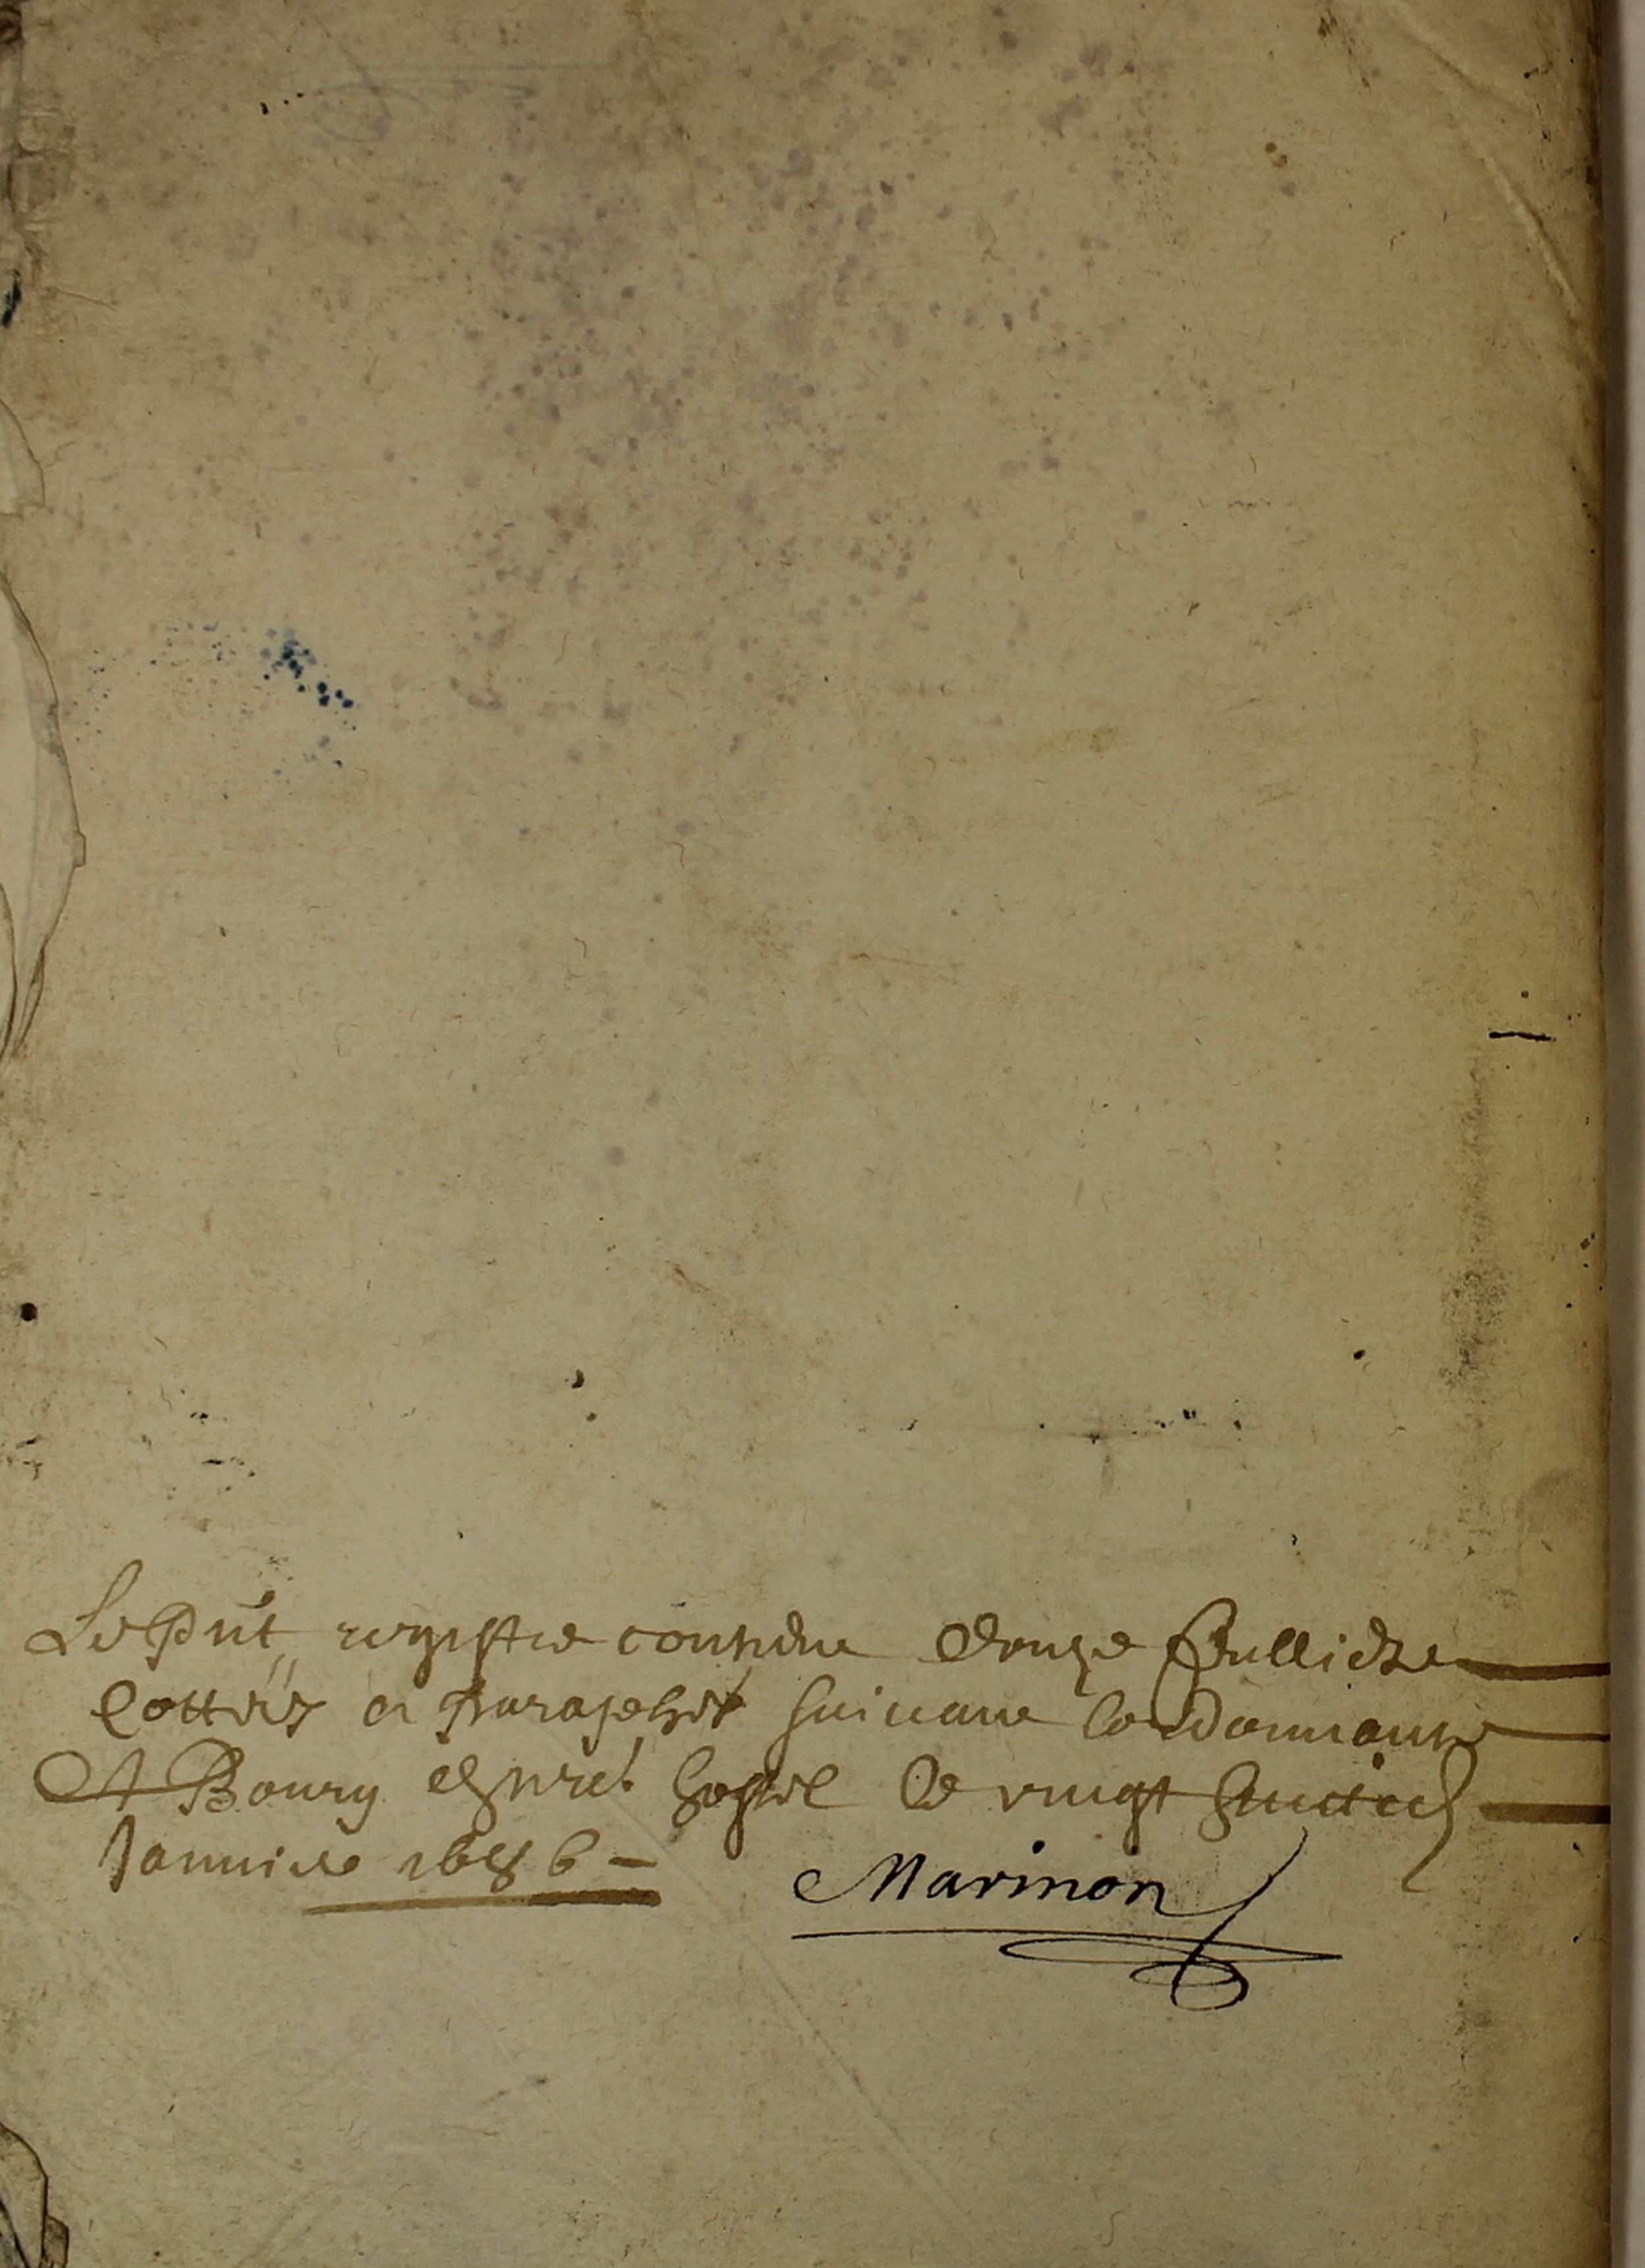 Le pnt registre contient douze feullietz
Cottéz et paraphéz suivant lordonnance
A Bourg en nred. hostel le vingt huictie
Janvier 1686
Marinon